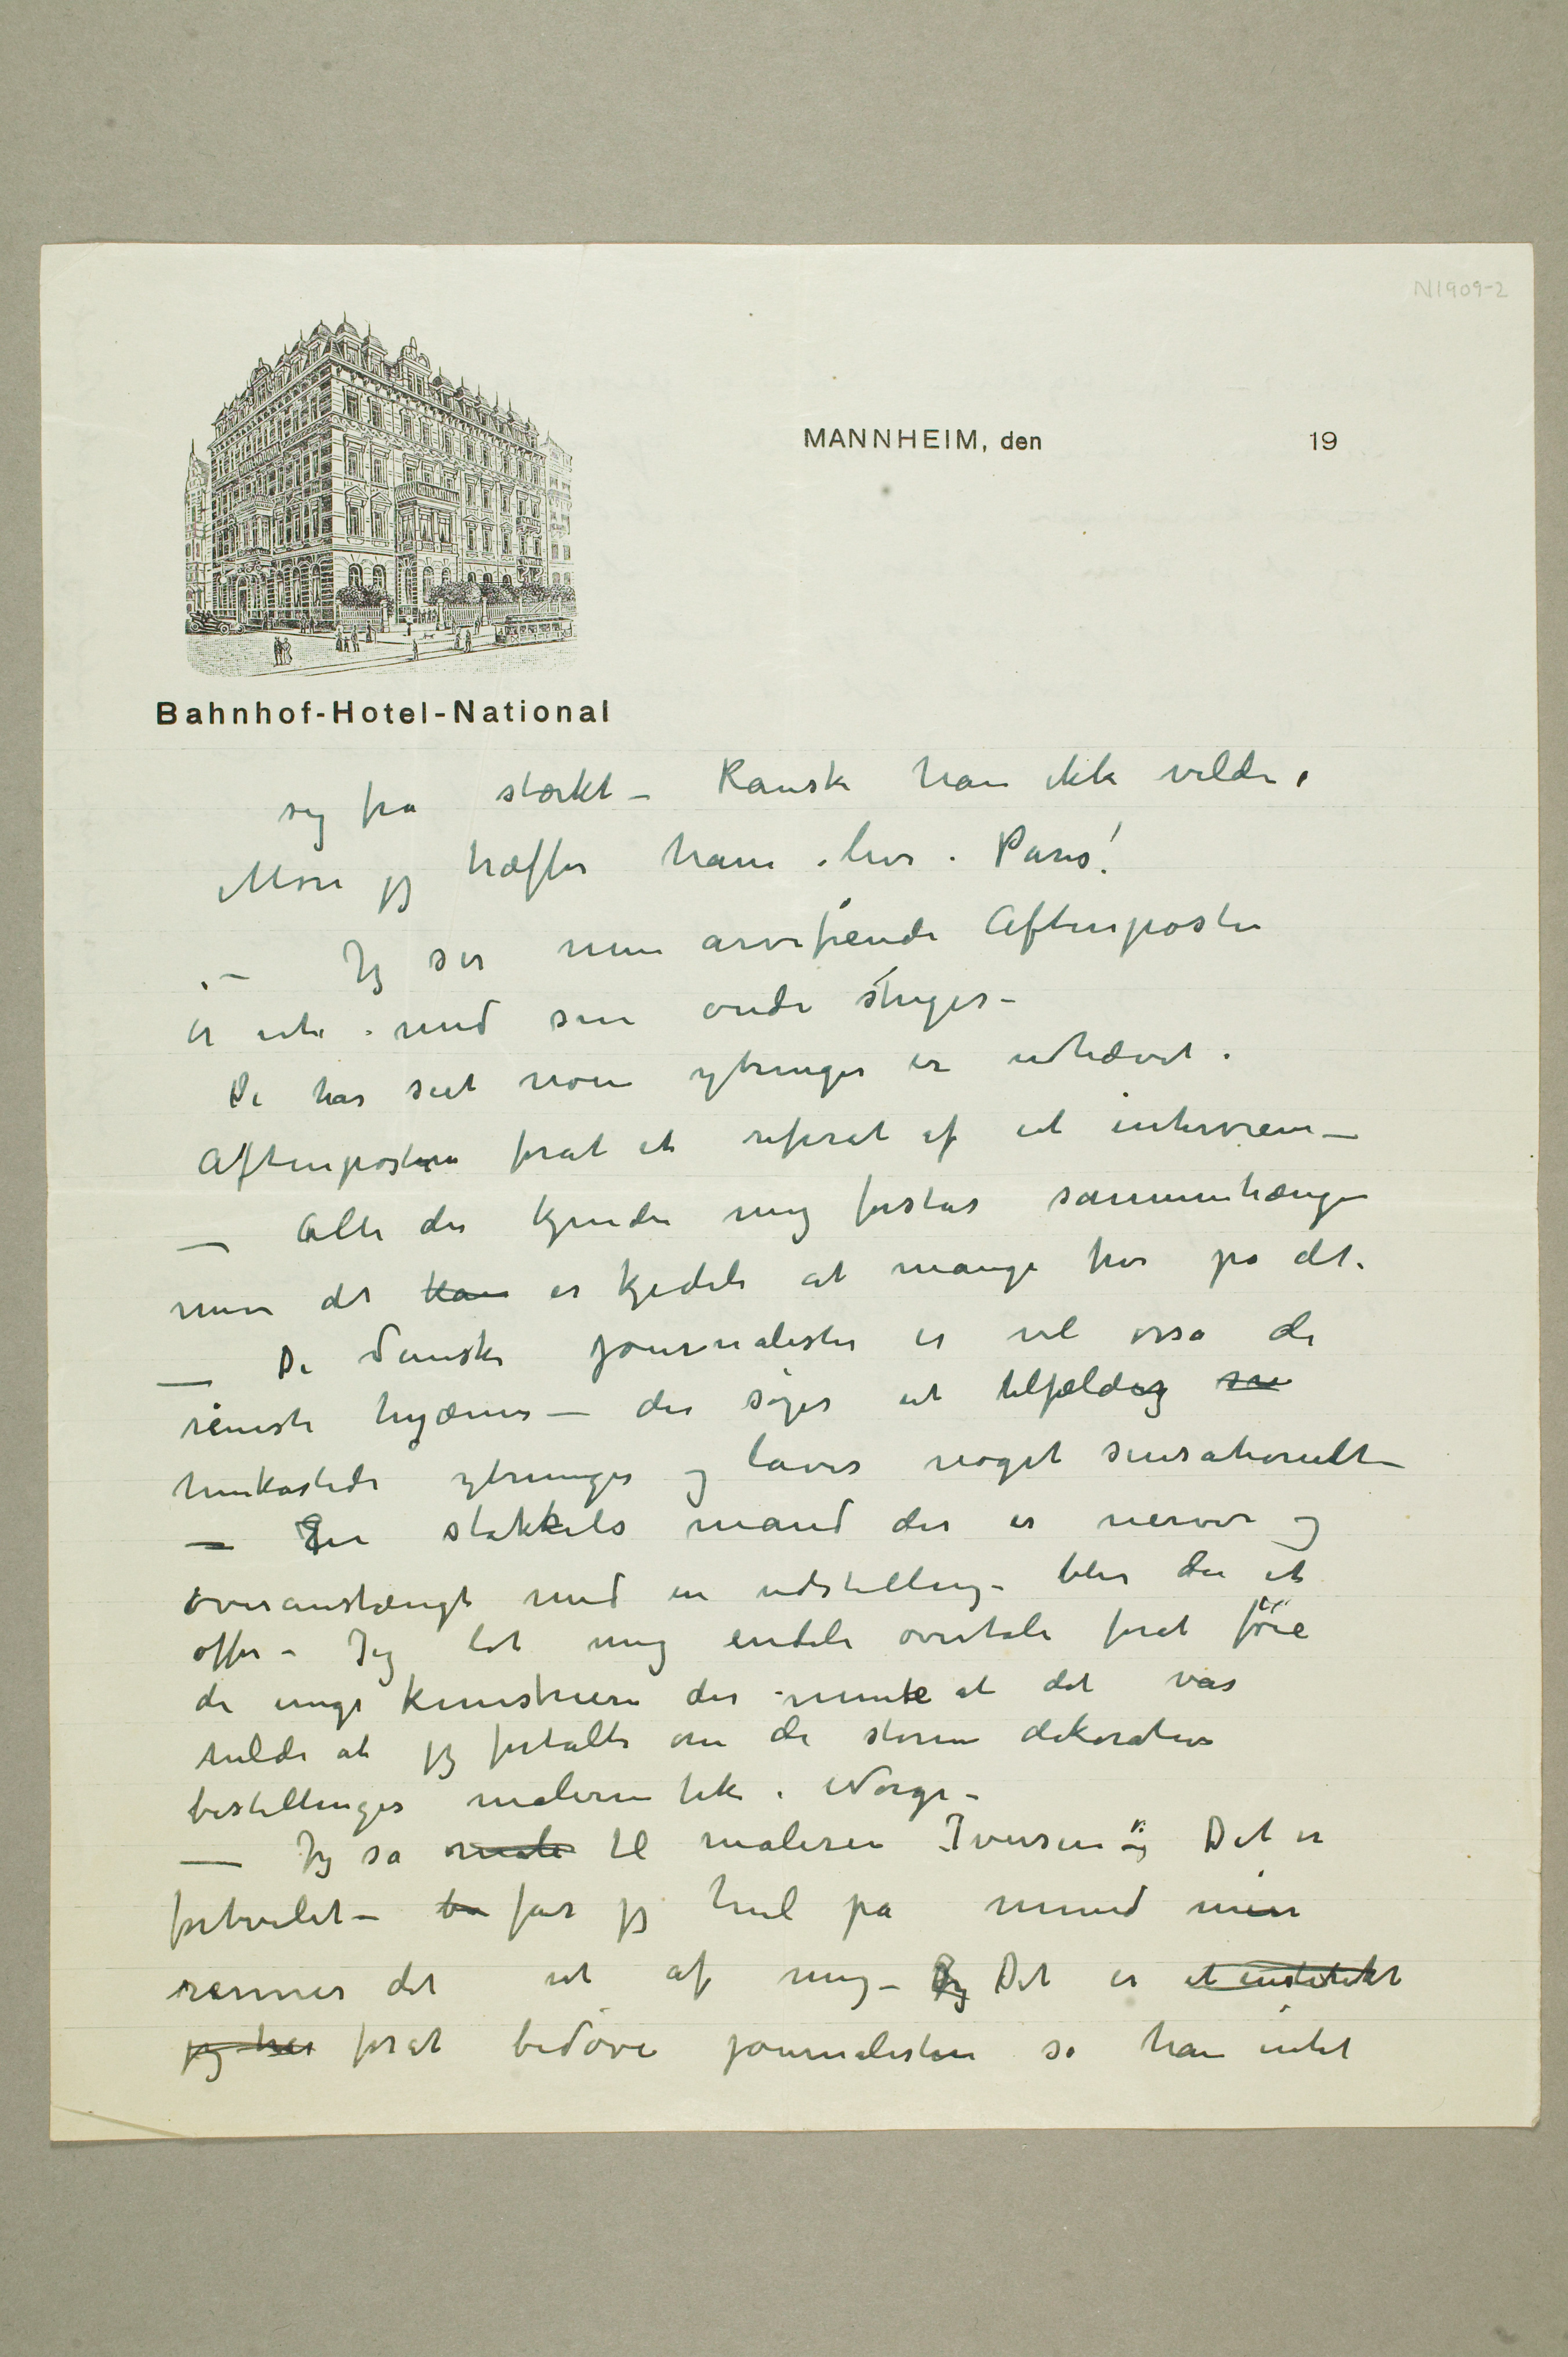 N1909-2
MANNHEIM, den 19
Bahnhof-Hotel-National
sig fra stærkt – Kanske han ikke vilde,
Mon jeg træffer ham her i Paris!
– Jeg ser min arvefiende Aftenposten
er ute med sin onde slinger –
De har set noen ytringer er udhævet i
Aftenposten forat et referat af et interview –
– Alle der kjender mig forstår sammenhængen
men det kan er kjedeli at mange tror på det.
– De danske journalister er vel osså de
reneste hyæner – der søger ut tilfældig
henkastede ytringer og laver noget sensationelt –
– En stakkels mand der er nervøs og
overanstrængt med en udstilling – blir da et
offer – Jeg lot mig endeli overtale forat føie
de unge kunstnere der mente at det var
heldi at jeg fortalte om de store dekorative
bestillinger malerne fik i Norge –
– Jeg sa male til maleren Iversen og Det er
fortvilet – får jeg hul på mund min
renner det ut af mig – Jeg Det er et institikt
jeg har forat bedøve journalisten så han intet